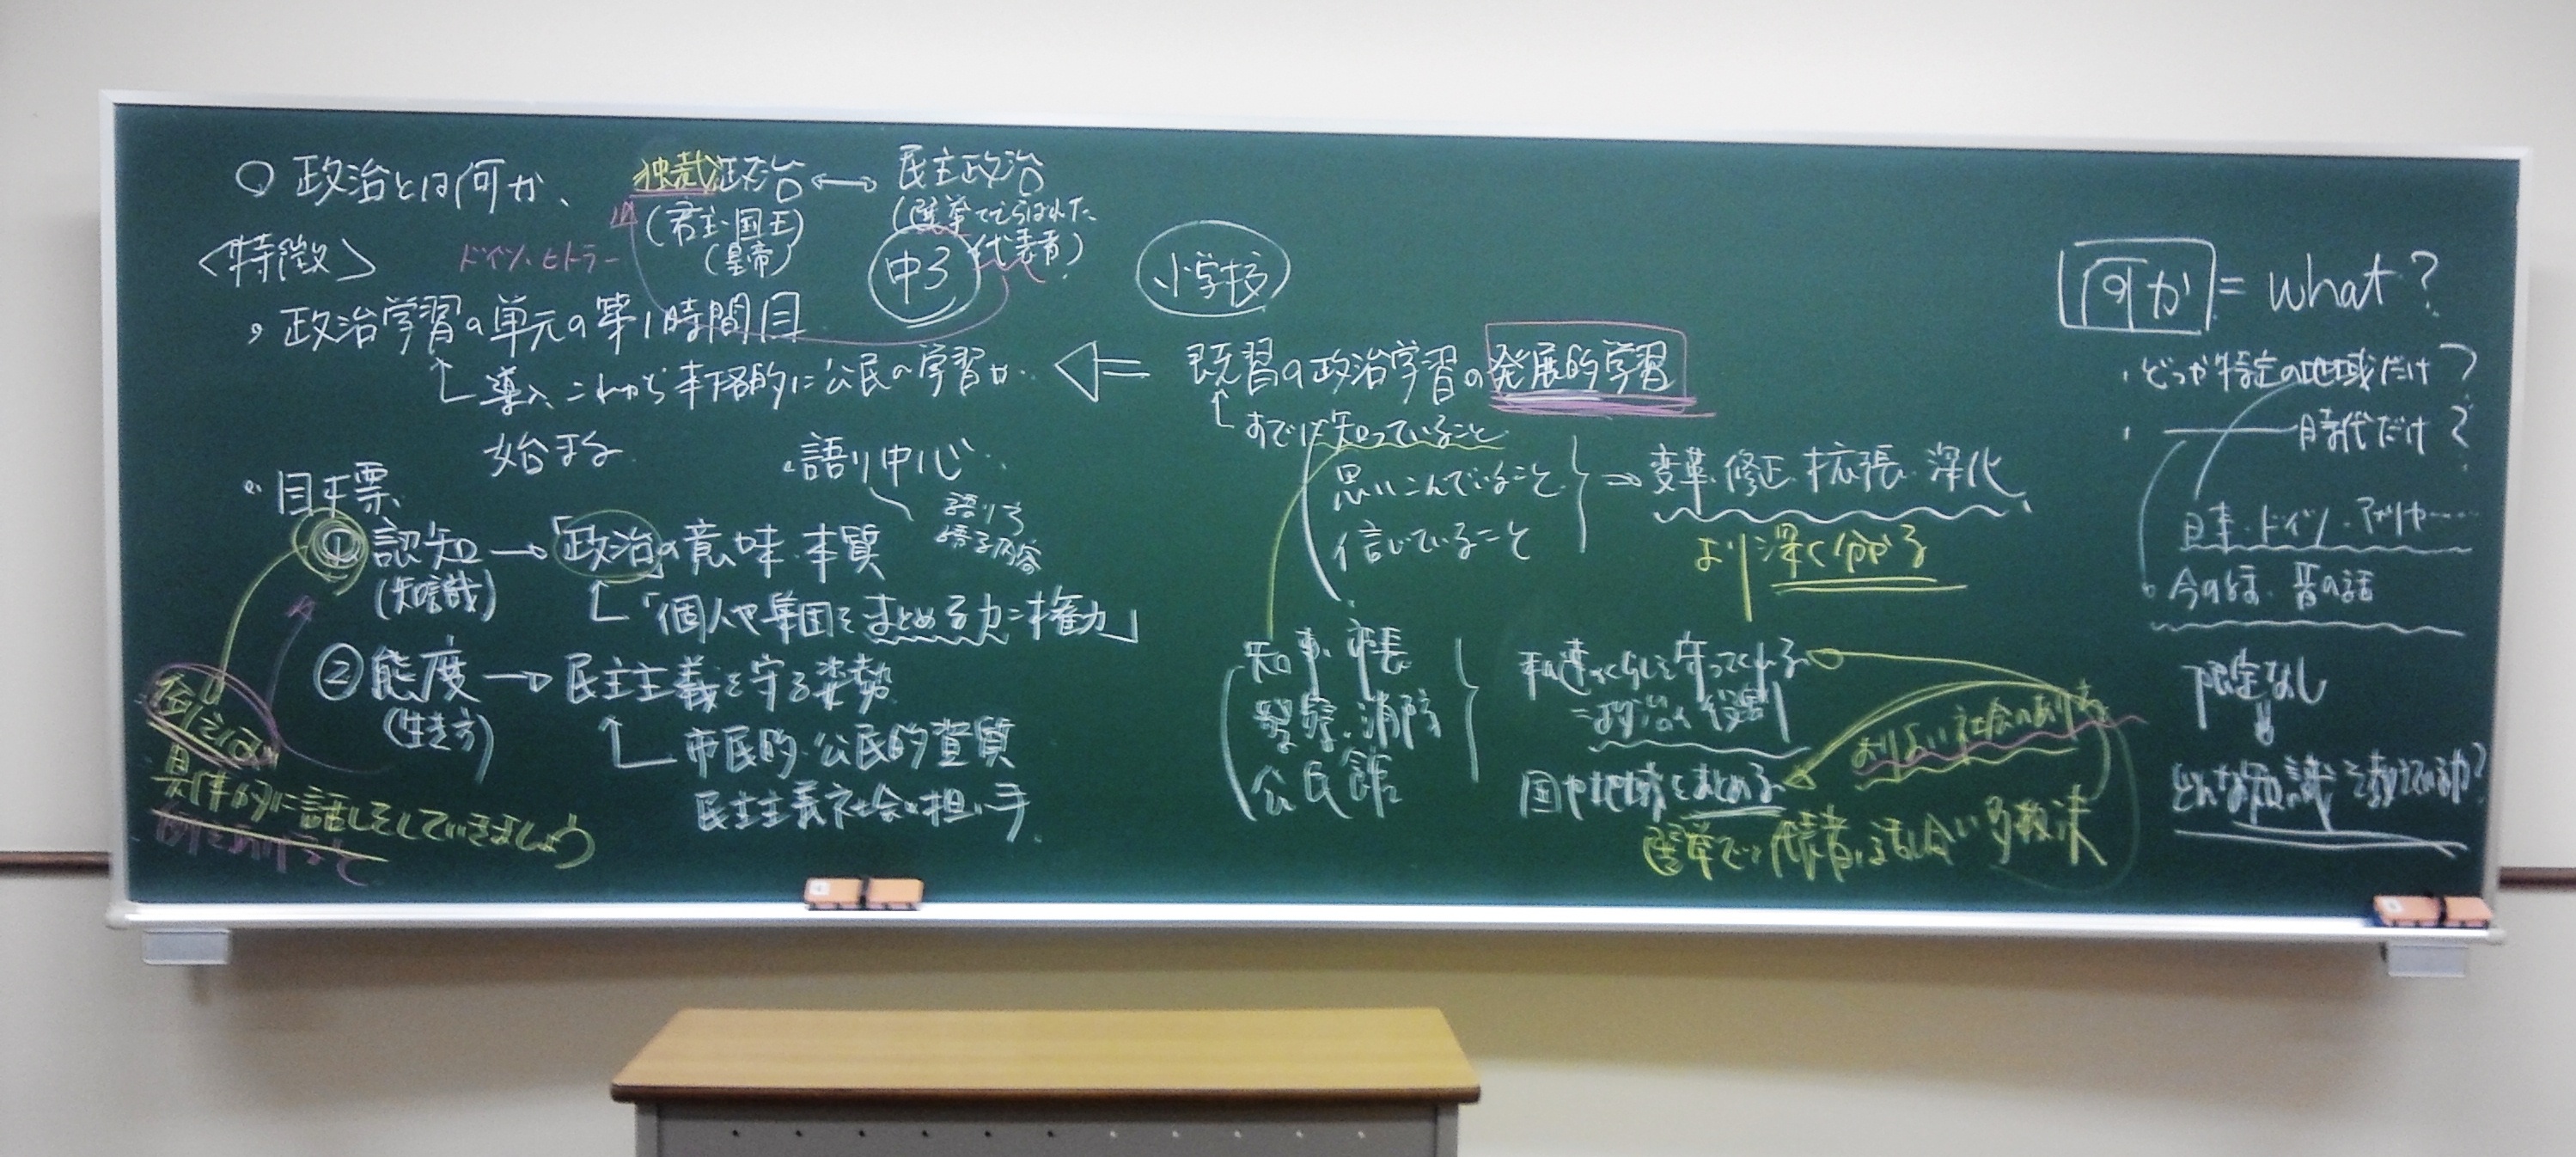 ○ 政治とは何か、
<特徴>
・政治学習の単元の第1時間目
導入 これから本格的に公民の学習が
始まる
独裁政治 ↔ 民主政治
(君主・国王)
(皇帝)
(選挙でえらばれた
代表者)
ドイツ・ヒトラー
中3
・語り中心
語り手
語る内容
・目標
① 認知 → 「政治」の意味・本質
(知識)
「個人や集団をまとめる力=権力」
② 態度 → 民主主義を守る姿勢
(生き方)
市民的・公民的資質
民主主義社会の担い手
例えば
具体的に話しをしていきましょう
小学校
既習の政治学習の発展的学習
すでに知っていること
思いこんでいること
信じていること
→ 変革・修正・拡張・深化
より深く分かる
知事・市長
警察・消防
公民館
私達のくらしを守ってくれる
=政治の役割
国や地域をまとめる
よりよい社会のあり方
選挙で代表者 話し合い 多数決
何か = what?
・どっか特定の地域だけ?
・ ― 時代だけ?
日本・ドイツ・アメリカ……
今の話・昔の話
限定なし
どんな知識を教えているか?